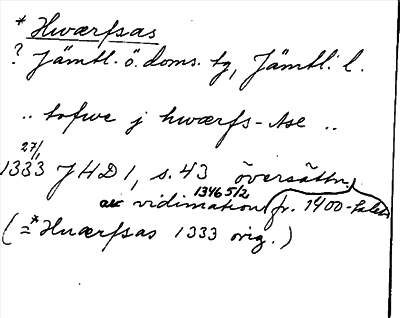 * Hwærfsas
? Jämtl. ö. doms. tg, Jämtl. l.
.. tofwe j hwærfs-Ase ..
27/1
1333 JHD 1, s. 43 översättn.
av vidimation 1346 5/2 (fr. 1400-talet)
(= *Hwærfsas 1333 orig.)